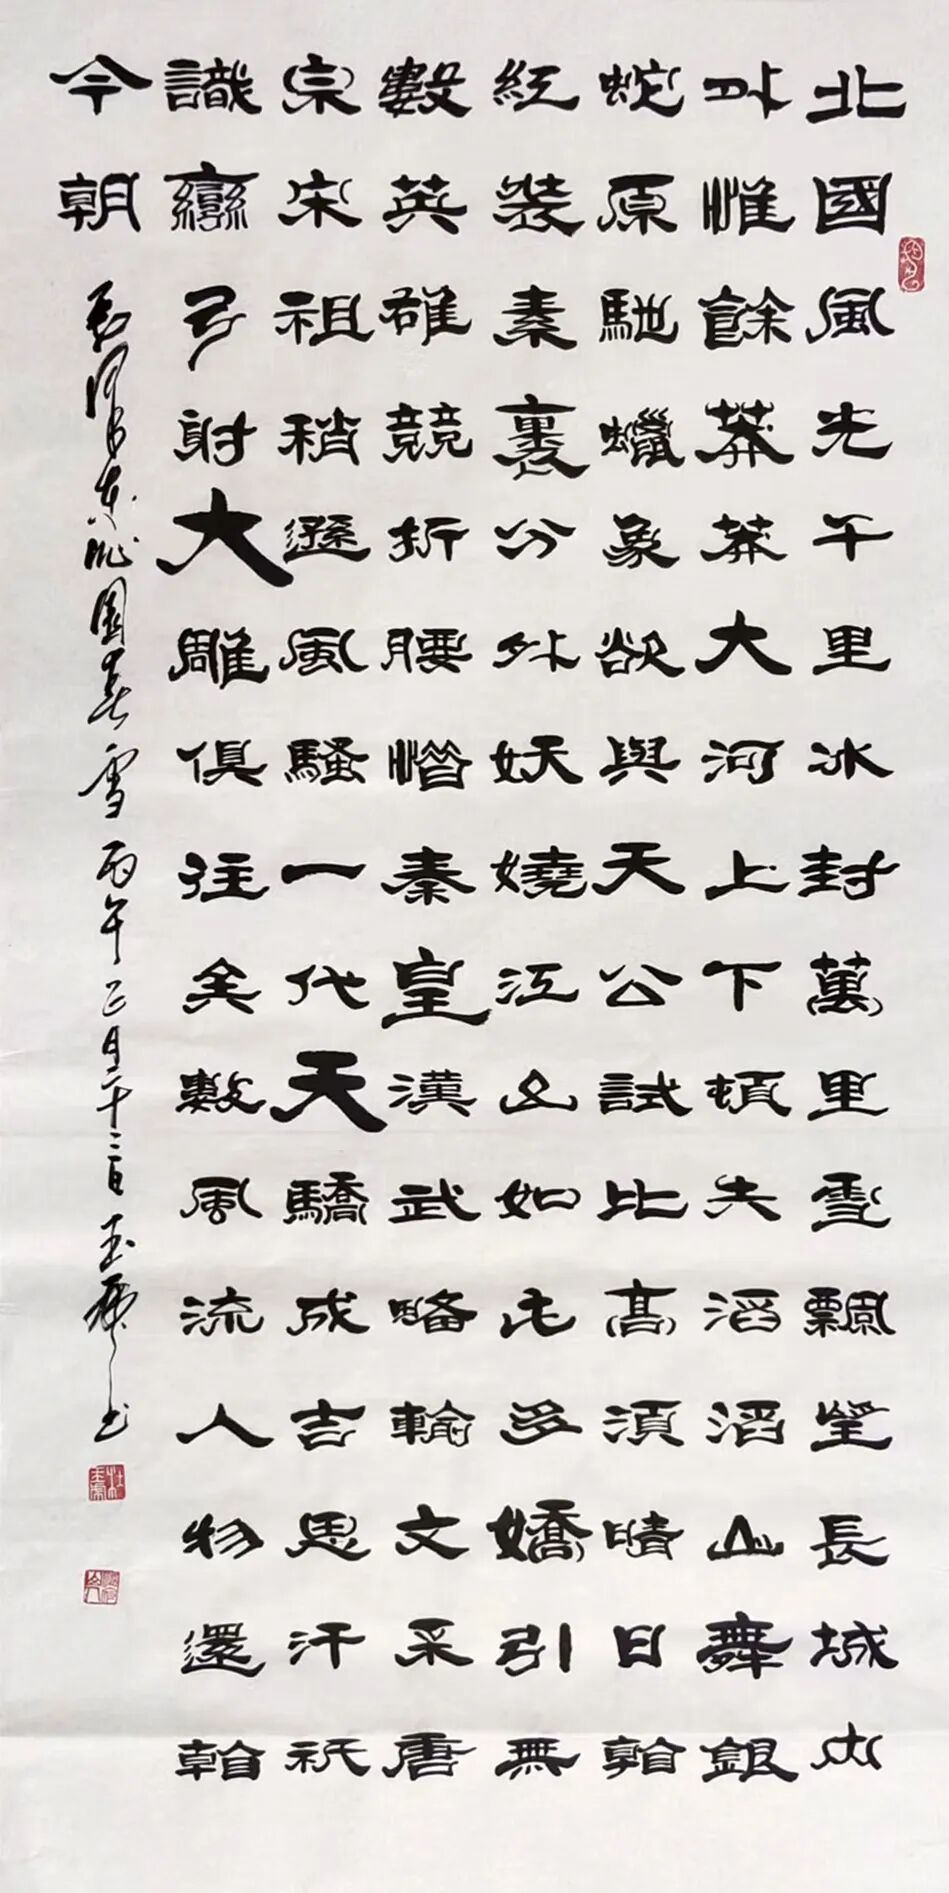 北國風光千里冰封萬里雪飄望長城内
外惟餘莽莽大河上下頓失滔滔山舞銀
蛇原馳蠟象欲與天公試比高須晴日看
紅裝素裹分外妖嬈江山如此多嬌引無
數英雄競折腰惜秦皇漢武略輸文采唐
宗宋祖稍遜風騷一代天驕成吉思汗祇
識彎弓射大雕俱往矣數風流人物還看
今朝
毛澤東沁園春雪丙午正月二十二日玉虎書